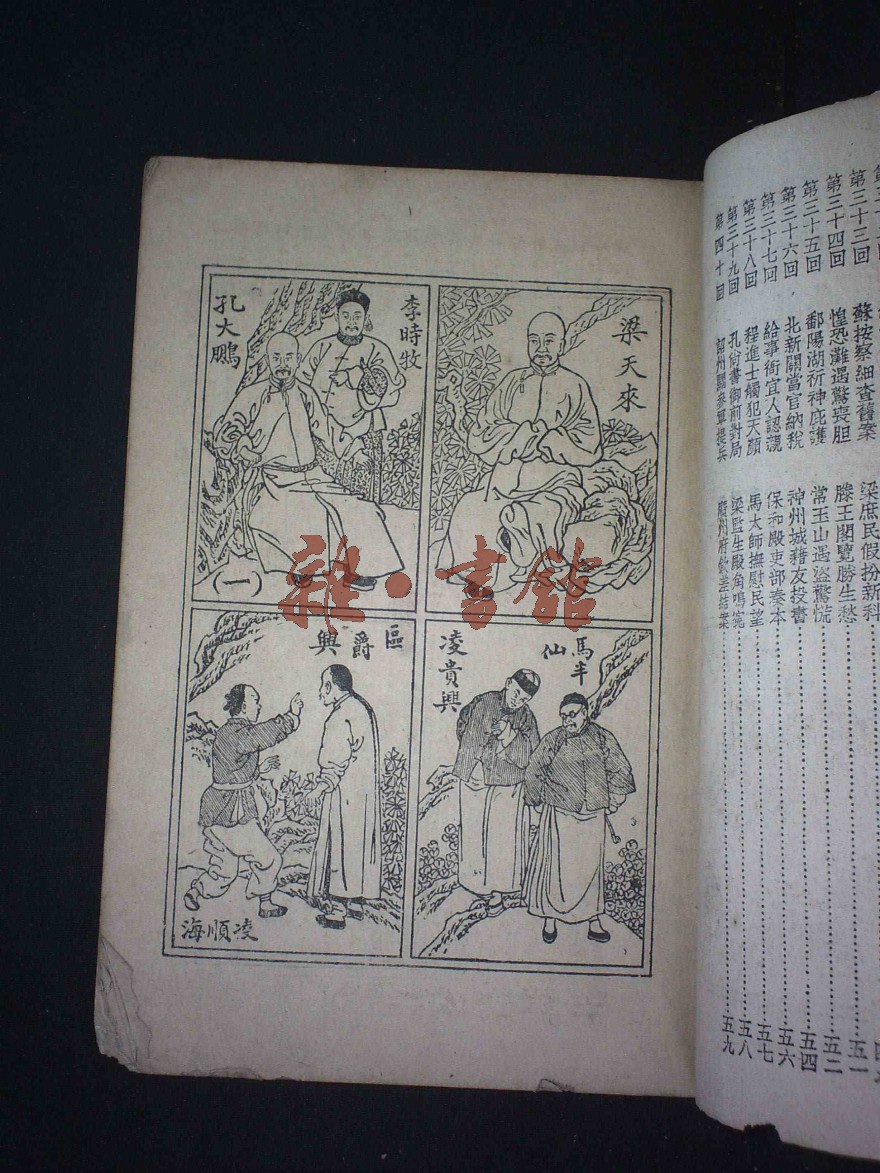 第三十三回 惶恐灘遇驚喪胆 滕王閣覽勝生愁 五一
第三十四回 鄱陽湖祈神庇護 常玉山遇盜驚慌 五二
第三十五回 北新關當官納稅 神州城藉友投書 五四
第三十六回 給事衙宜人認親 保和殿吏部奏本 五六
第三十七回 程進士觸犯天顏 馬太師撫慰民望 五七
第三十八回 孔尚書御前對局 梁監生殿角鳴寃 五八
第三十九回
第四十回 五九
蘇按察細查舊案 梁庶民假扮新科
梁天來
李時牧
孔大鵬
(一)
馬半仙
凌貴興
區爵興
凌順海
雜·書舘